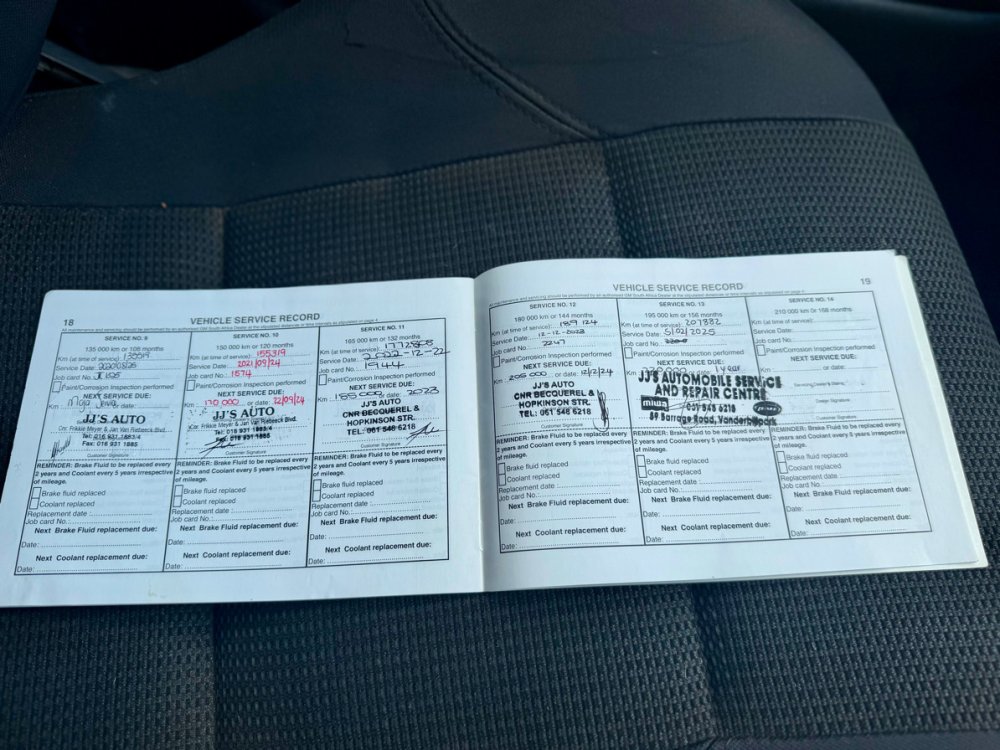 18
VEHICLE SERVICE RECORD
All maintenance and servicing should be performed by an authorised GM South Africa Dealer at the stipulated distances or time intervals as stipulated on page
SERVICE NO. 9
135 000 km or 108 months
Km (at time of service):
Service Date:
Job card No.
Paint/Corrosion Inspection performed
NEXT SERVICE DUE:
Km or date:
JJ'S AUTO
Cnr. Frikkie Meyer & Jan Van Riebeeck Blvd.
Tel: 016 931 1883/4
Fax: 016 931 1885
Customer Signature
REMINDER: Brake Fluid to be replaced every
2 years and Coolant every 5 years irrespective
of mileage.
Brake fluid replaced
Coolant replaced
Replacement date :
Job card No.
Next Brake Fluid replacement due:
Date:
Next Coolant replacement due:
Date:
SERVICE NO. 10
150 000 km or 120 months
Km (at time of service): 155319
Service Date: 2021/09/24
Job card No. 1574
Paint/Corrosion Inspection performed
NEXT SERVICE DUE:
Km 170 000 or date: 22/09/24
JJ'S AUTO
Cnr. Frikkie Meyer & Jan Van Riebeeck Blvd.
Tel: 016 931 1883/4
Fax: 016 931 1885
Customer Signature
REMINDER: Brake Fluid to be replaced every
2 years and Coolant every 5 years irrespective
of mileage.
Brake fluid replaced
Coolant replaced
Replacement date :
Job card No.
Next Brake Fluid replacement due:
Date:
Next Coolant replacement due:
Date:
SERVICE NO. 11
165 000 km or 132 months
Km (at time of service):
Service Date: 2022-12-22
Job card No. 1944
Paint/Corrosion Inspection performed
NEXT SERVICE DUE:
Km or date: 2023
JJ'S AUTO
CNR BECQUEREL &
HOPKINSON STR.
TEL: 061 546 6218
Customer Signature
REMINDER: Brake Fluid to be replaced every
2 years and Coolant every 5 years irrespective
of mileage.
Brake fluid replaced
Coolant replaced
Replacement date :
Job card No.
Next Brake Fluid replacement due:
Date:
Next Coolant replacement due:
Date:
VEHICLE SERVICE RECORD
19
All maintenance and servicing should be performed by an authorised GM South Africa Dealer at the stipulated distances or time intervals as stipulated on page
SERVICE NO. 12
180 000 km or 144 months
Km (at time of service): 189 124
Service Date: 12-12-2023
Job card No. 2247
Paint/Corrosion Inspection performed
NEXT SERVICE DUE:
Km 205 000 or date: 12/12/24
JJ'S AUTO
CNR BECQUEREL &
HOPKINSON STR.
TEL: 061 546 6218
Customer Signature
REMINDER: Brake Fluid to be replaced every
2 years and Coolant every 5 years irrespective
of mileage.
Brake fluid replaced
Coolant replaced
Replacement date :
Job card No.
Next Brake Fluid replacement due:
Date:
Next Coolant replacement due:
Date:
SERVICE NO. 13
195 000 km or 156 months
Km (at time of service): 207882
Service Date: 5/02/2025
Job card No.
Paint/Corrosion Inspection performed
NEXT SERVICE DUE:
or date: 1 year
JJ'S AUTOMOBILE SERVICE
AND REPAIR CENTRE
miwa 061 546 6218
59 Barrage Road, Vanderbijlpark
REMINDER: Brake Fluid to be replaced every
2 years and Coolant every 5 years irrespective
of mileage.
Brake fluid replaced
Coolant replaced
Replacement date :
Job card No.
Next Brake Fluid replacement due:
Date:
Next Coolant replacement due:
Date:
SERVICE NO. 14
210 000 km or 168 months
Km (at time of service):
Service Date:
Job card No.
Paint/Corrosion Inspection performed
NEXT SERVICE DUE:
Km or date:
Customer Signature
REMINDER: Brake Fluid to be replaced every
2 years and Coolant every 5 years irrespective
of mileage.
Brake fluid replaced
Coolant replaced
Replacement date :
Job card No.
Next Brake Fluid replacement due:
Date:
Next Coolant replacement due:
Date: